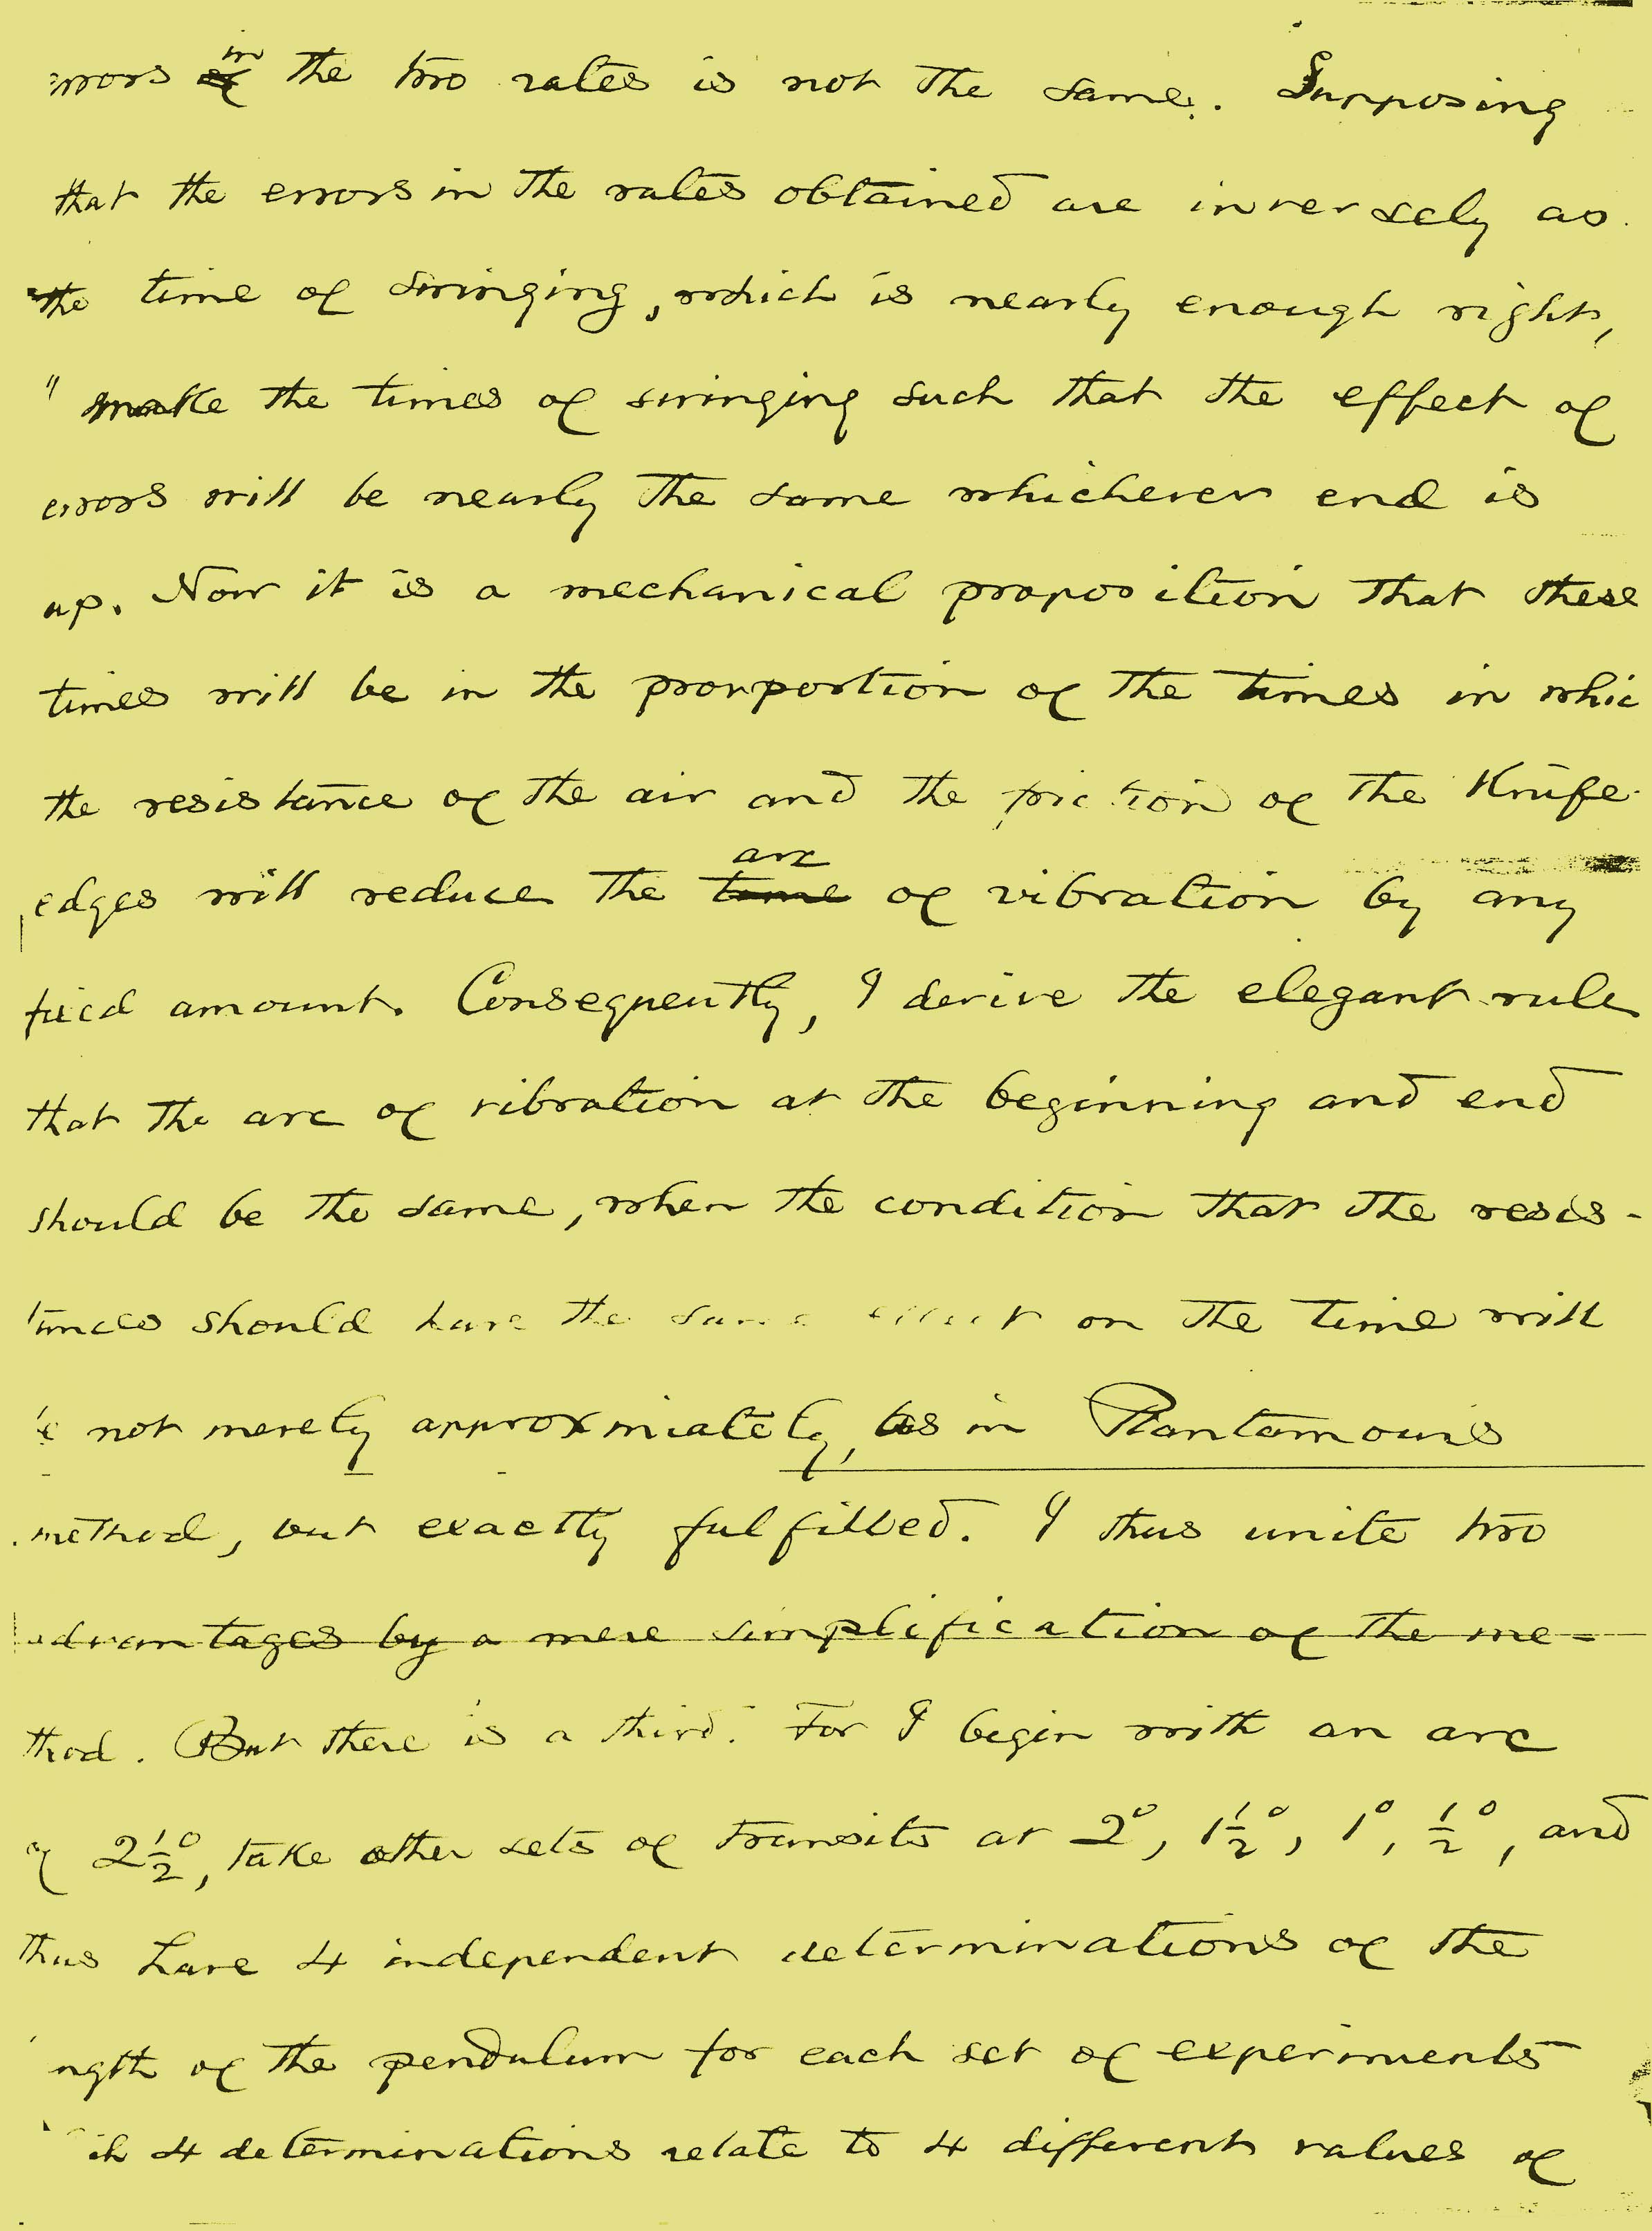 errors in the two rates is not the same. Supposing
that the errors in the rates obtained are inversely as
the time of swinging, which is nearly enough right,
" make the times of swinging such that the effect of
errors will be nearly the same whichever end is
up. Now it is a mechanical proposition that these
times will be in the proportion of the times in whic
the resistance of the air and the friction of the Knife
edges will reduce the arc of vibration by any
fixed amount. Consequently, I derive the elegant rule
that the arc of vibration at the beginning and end
should be the same, when the condition that the resis-
tances should have the same effect on the time will
be not merely approximately, as in Plantamour's
method, but exactly fulfilled. I thus unite two
advantages by a mere simplification of the me-
thod. But there is a third. For I begin with an arc
of 2½°, take other sets of transits at 2°, 1½°, 1°, ½°, and
thus have 4 independent determinations of the
ngth of the pendulum for each set of experiments
4 determinations relate to 4 different values of